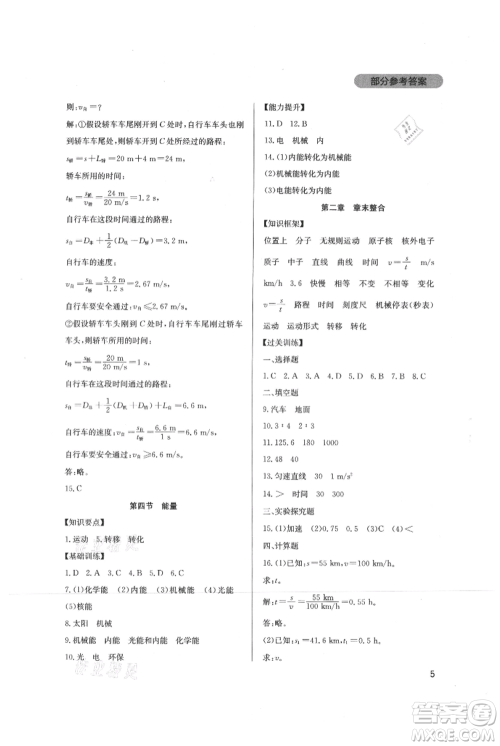 部分参考答案
则:v自=?
解:①假设轿车车尾刚开到 C 处时,自行车车尾刚
离开 C 处所经过的路程。
s轿=s+L轿=20 m+4 m=24 m
轿车所用的时间:
t轿=s轿/v轿=24 m/20 m/s=1.2 s
自行车在这段时间内通过的路程:
自行车的速度:
自行车要安全通过:v自≤2.67 m/s
②假设轿车车头刚到 C 处时,自行车要穿过轿车车
头,则轿车所用的时间:
t轿=s轿/v轿=20 m/20 m/s=1 s
自行车在这段时间内通过的路程:
自行车的速度:v自=s自/t轿=6.6 m/1 s=6.6 m/s
自行车要安全通过:v自≥6.6 m/s
答:略。
15.C
第四节 能量
【知识要点】
1.运动 5.转移 转化
【基础训练】
1.D 2.A 3.D 4.A 5.B 6.C
7.(1)化学能 (2)内能 (3)机械能 (4)光能
(5)核能
8.太阳 机械
9.机械能 内能 内能 机械能
10.光 电 环保
【能力提升】
11.D 12.B
13.电 机械 内
14.(1)内能转化为机械能
(2)机械能转化为内能
(3)电能转化为机械能
第二章 章末整合
【知识框架】
位置上 分子 无规则运动 原子核 核外电子
质子 中子 直线 曲线 时间 v=s/t m/s
km/h 3.6 慢慢 相等 变化 平均
v=s/t 路程 时间 刻度尺 机械停表(秒表)
运动 运动形式 转移 转化
【过关训练】
一、选择题
1.C 2.A 3.D 4.B 5.C 6.C 7.B 8.B
二、填空题
9.汽车 地面
10.3:4 2:3
11.125.6 180 100
12.48 40
13.匀速直线 30
14.> 时间 = 路程
三、实验探究题
15.(1)加速 (2)0.75 0.9 0.5
四、计算题
16.(1)已知:s=55 km,v=100 km/h。
求:t。
解:t=s/v=55 km/100 km/h=0.55 h
答:略。
(2)已知:
求:v。
5